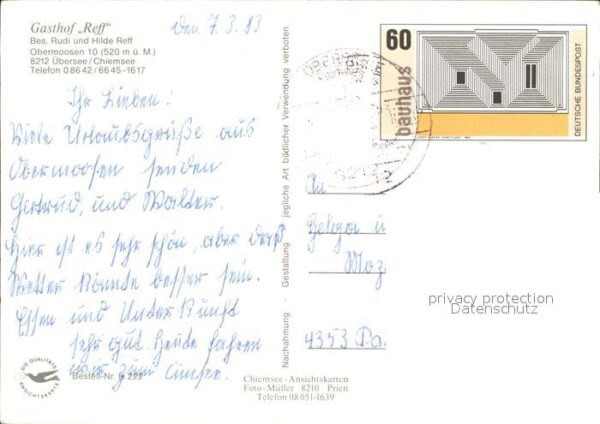 Gasthof „Reff"
Bes. Rudi und Hilde Reff
Obermoosen 10 (520 m ü. M.)
8212 Übersee/Chiemsee
Telefon 08642/6645-1617
Den 7.3.83
Ihr Lieben!
Viele Urlaubsgrüße aus
Obermoosen senden
Gertrud, und Walter.
Hier ist es sehr schön, aber das
Wetter könnte besser sein.
Essen und Unterkunft
sehr gut. Heute fahren
wir zum
DIE QUALITÄTS
ANSICHTSKARTE
Bestell-Nr. H 222
Nachahmung - Gestaltung jegliche Art bildlicher Verwendung verboten
Chiemsee-Ansichtskarten
Foto-Müller 8210 Prien
Telefon 08051-1639
60
bauhaus
DEUTSCHE BUNDESPOST
8212
An
u
4353
privacy protection
Datenschutz